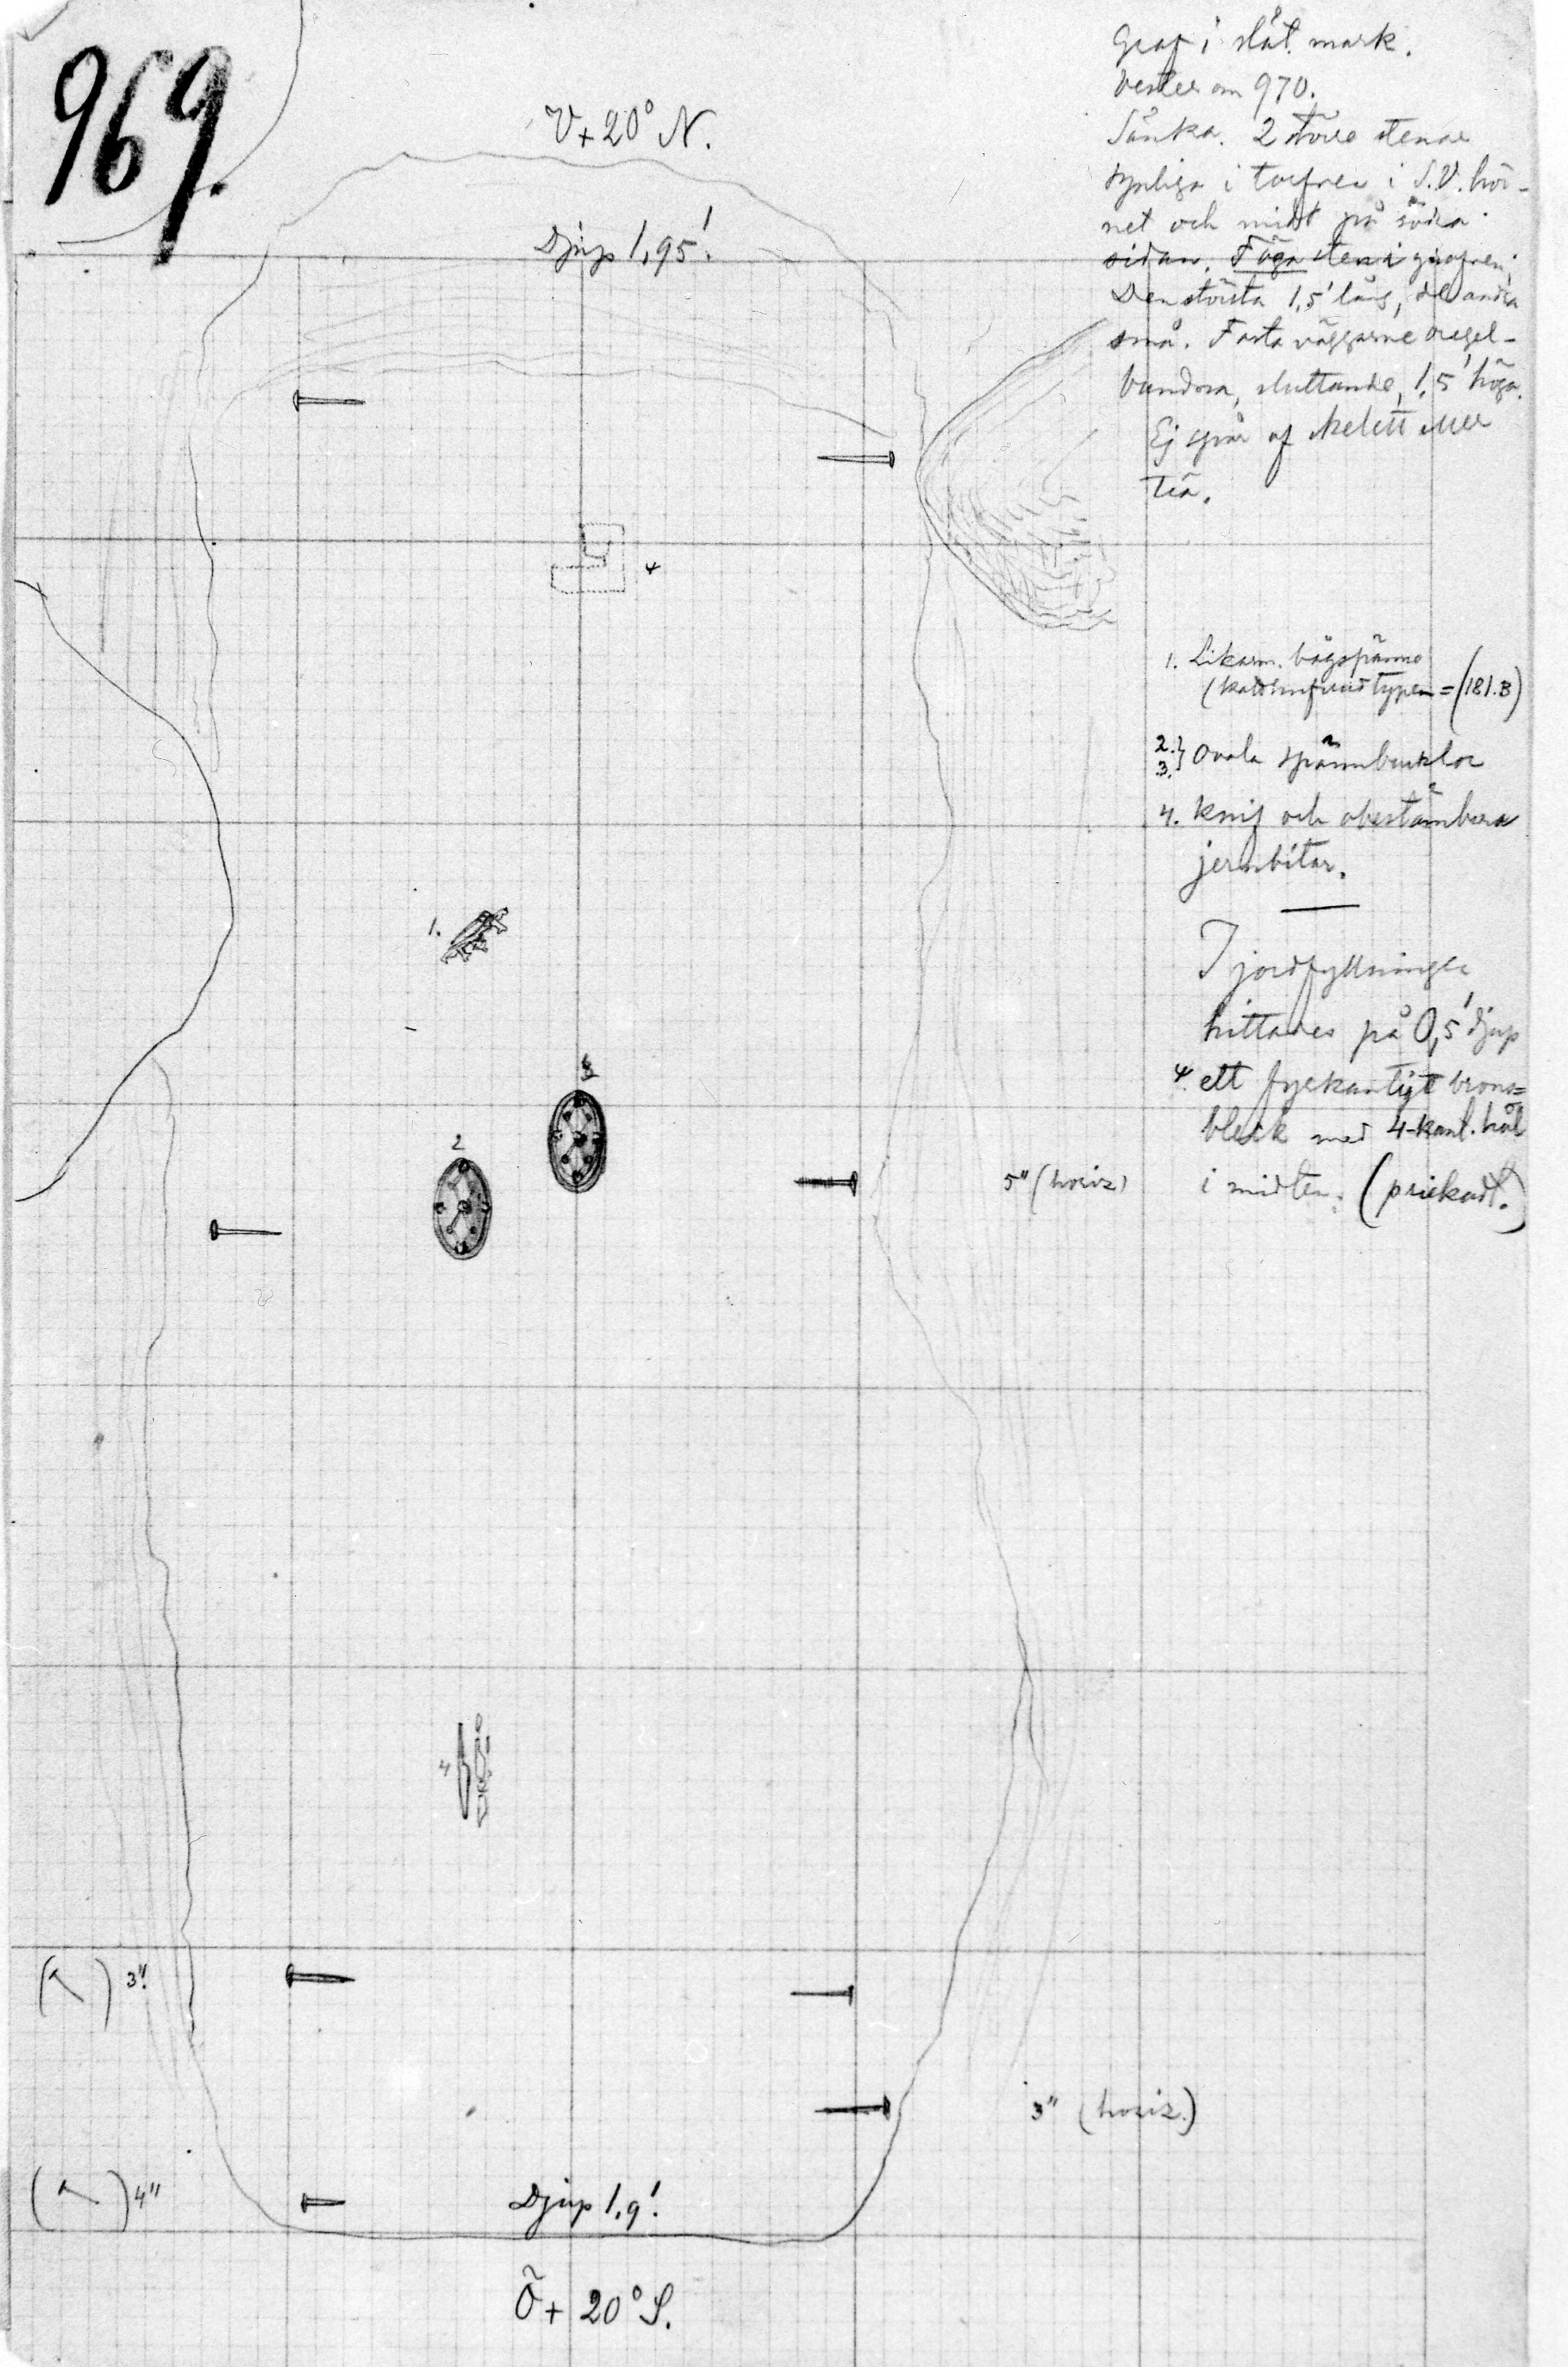 969.
V + 20° N.
Djup 1,95'.
Graf i slät mark.
Vester om 970.
Sänka. 2 större stenar
synliga i torfven i S.V. hör-
net och midt på södra
sidan. Föga sten i grafven;
Den största 1,5' lång, de andra
små. Fasta väggarne oregel-
bundna, sluttande, 1,5' höga.
Ej spår af skelett eller
trä.
4
1. Likarm. bågspänne
typen = (181.B)
2.} Ovala spännbucklor
3.
4. Knif och obestämbara
jernbitar.
I jordfyllningen
hittades på 0,5' djup
4. ett fyrkantigt brons=
bleck med 4-kant. hål
i midten. (prickadt.)
1.
3
2
5" (horiz)
4
( ) 3".
3" (horiz.)
( ) 4"
Djup 1,9'.
Ö + 20° S.